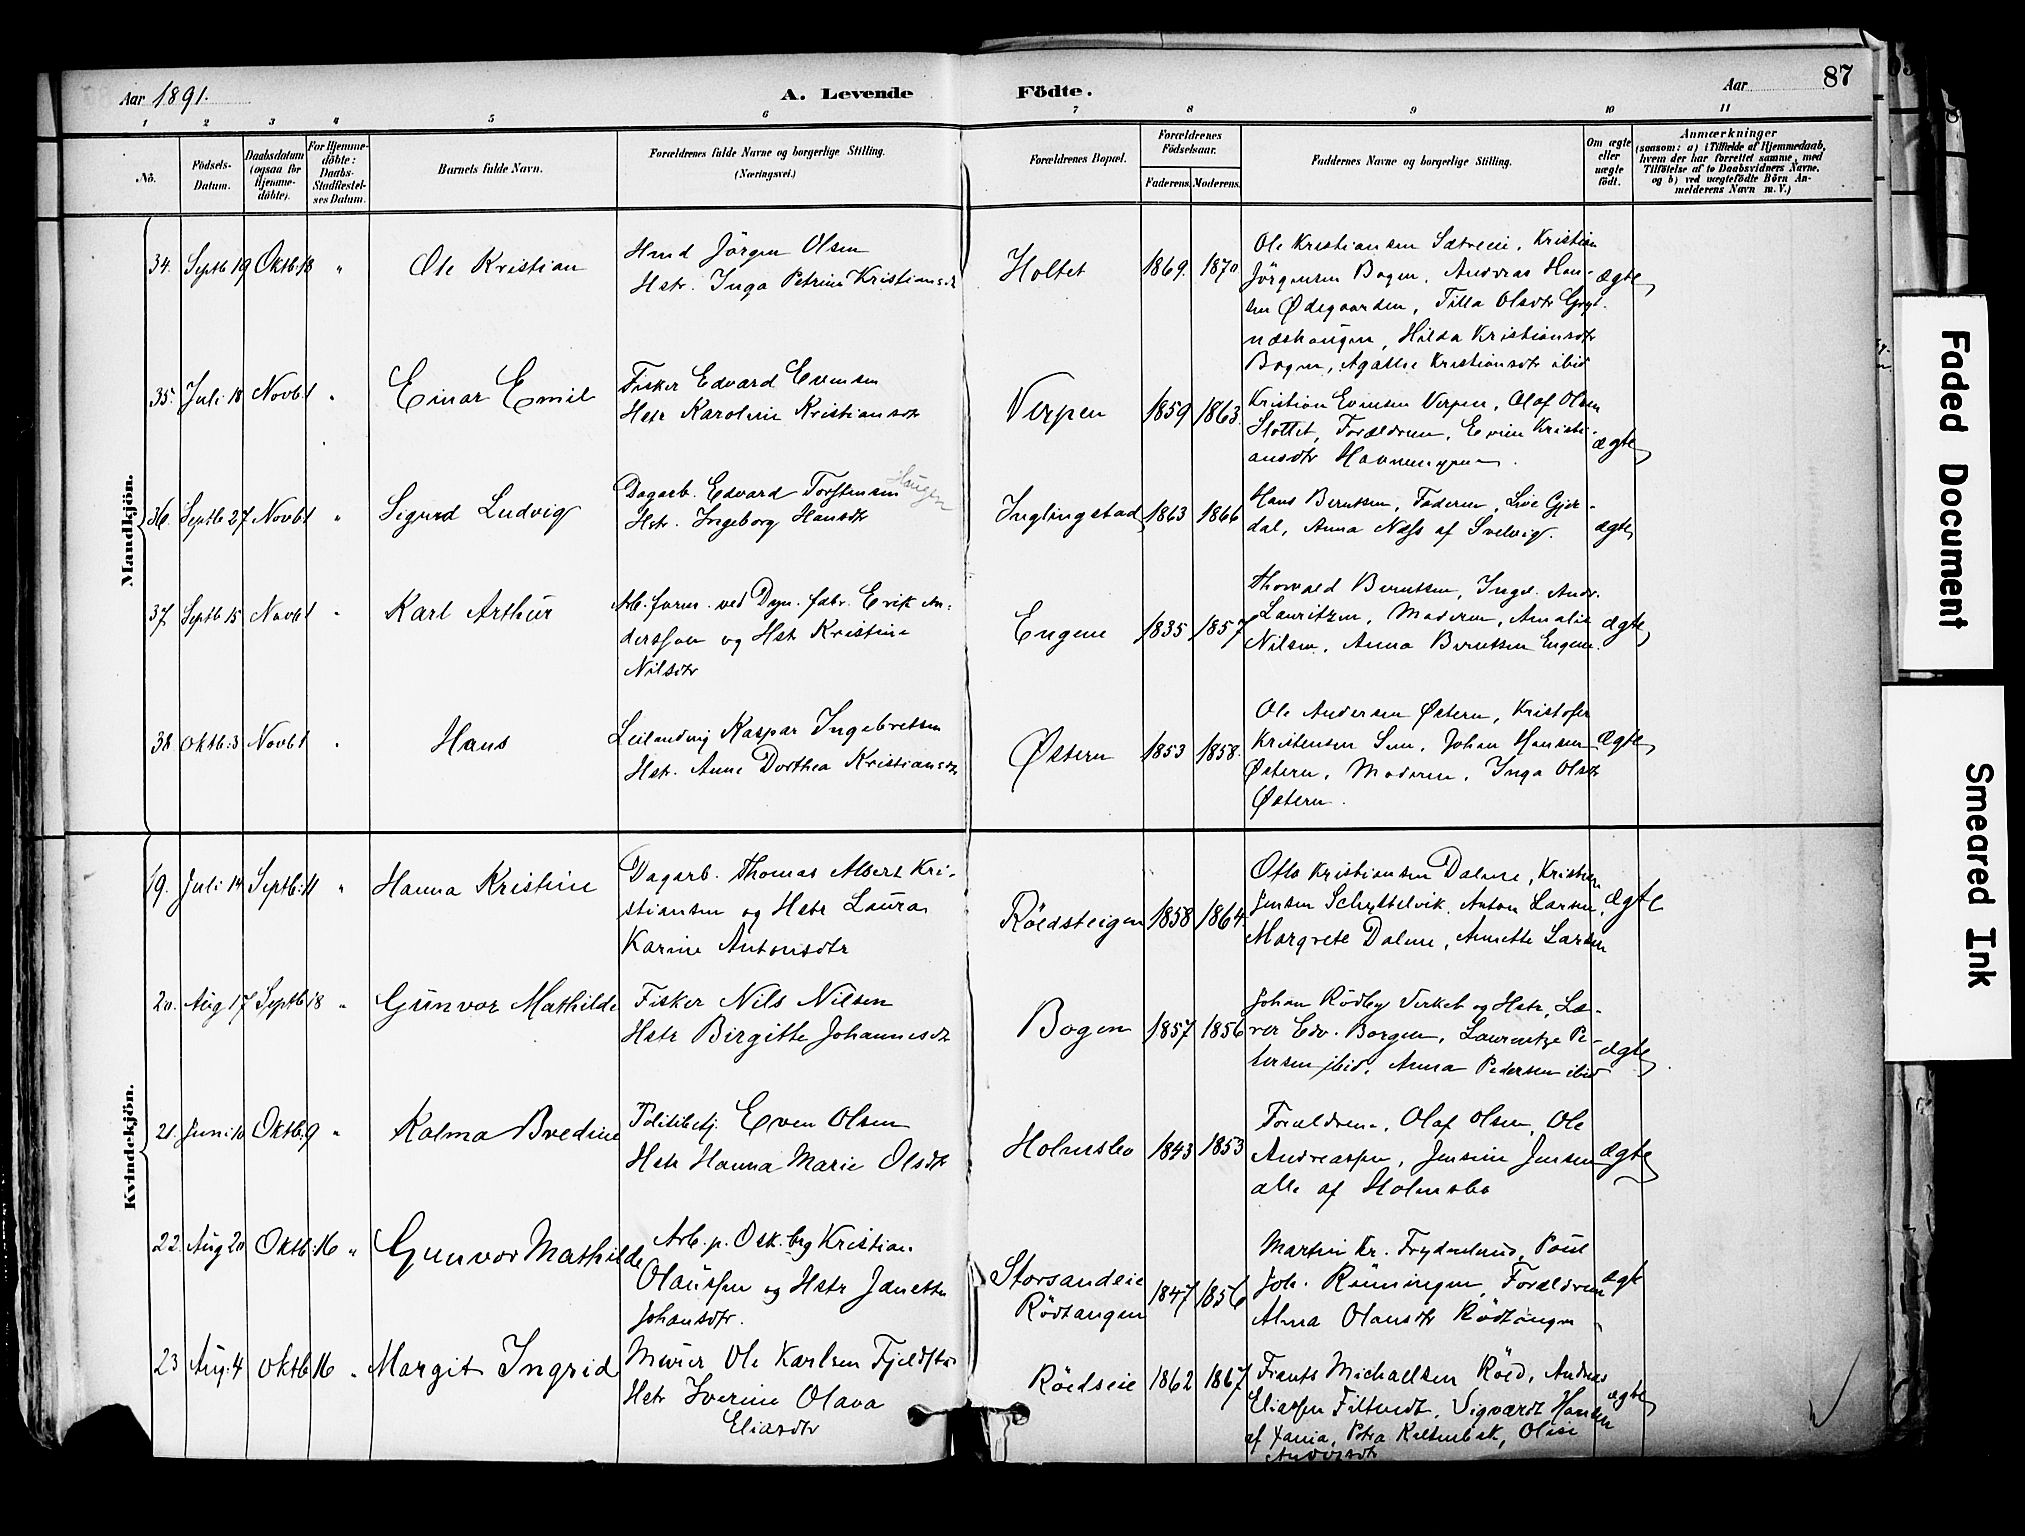 Aar 1891.
A. Levende
Födte.
Aar
87
1 2 3 4 5 6 7 8 9 10 11
No.
Födsels-
Datum.
Daabsdatum
(ogsaa for
Hjemme-
döbte).
For Hjemme-
döbte:
Daabs-
Stadfæstel-
ses Datum.
Barnets fulde Navn.
Forældrenes fulde Navne og borgerlige Stilling.
(Næringsvei.)
Forældrenes Bopæl.
Forældrenes
Födselsaar.
Faderens. Moderens.
Faddernes Navne og borgerlige Stilling.
Om ægte
eller
uægte
födt.
Anmærkninger
(saasom: a) i Tilfælde af Hjemmedaab,
hvem der har forrettet samme, med
Tilföielse af to Daabsvidners Navne,
og b) ved uægtefödte Börn An-
melderens Navn m. V.)
Mandkjön.
34. Septb 19 Oktb. 18 "
Ole Kristian
Jörgen Olsen
Hstr. Inga Petrine Kristiansdtr
Holtet
1869. 1870
Ole Kristiansen Sætreeie, Kristian
Jörgensen Bogen, Andreas Han-
sen Ødegaarden, Tilla Olsdtr
Hilda Kristiansdtr
Bogen, Agathe Kristiansdtr ibid
ægte
35. Juli 18 Novb 1 "
Einar Emil
Fisker Edvard Evensen
Hstr Karoline Kristiansdtr
Verpen
1859 1863.
Kristian Evensen Verpen, Olaf Olsen
Slottet, Forældrene, Kristi-
ansdtr
ægte
36. Septb 27 Novb 1 "
Sigurd Ludvig
Dagarb. Edvard Torstensen Haugen
Hstr. Ingeborg Hansdtr
Inglingstad
1863 1866
Hans Berntsen, Faderen, Gjer-
dal, Anna Næss af Svelvig.
ægte
37 Septb 15 Novb 1 "
Karl Arthur
Arb.form. ved Dyn. fabr. Erik An-
dersson og Hstr Kristine
Nilsdtr
Engene
1835 1857
Thorvald Berntsen,
Lauritzen, Moderen, Amalie
Nilsen, Anna Berntsen Engene.
ægte
38 Oktb. 3 Novb 1 "
Hans
Leilænding Kaspar Ingebretsen
Hstr. Anne Dorthea Kristiansdtr
Østern
1853 1858.
Ole Andersen Østern, Kristofer
Kristensen Johan Hansen
Østern, Moderen, Inga Olsdtr
Østern.
ægte
Kvindekjön.
19. Juli 14 Septb. 11 "
Hanna Kristine
Dagarb. Thomas Albert Kri-
stiansen og Hstr Laura
Karine Antonisdtr
Röedsteigen
1858 1864.
Otto Kristiansen Dalene, Kristian
Jensen Schyttelvik, Anton Larsen,
Margrete Dalene, Annette Larsen
ægte
20. Aug 17 Septb 18 "
Gunvor Mathilde
Fisker Nils Nilsen
Hstr Birgitte Johannesdtr
Bogen
1857 1856
Johan Rödby Verket og Hstr, Læ-
rer Edv. Borgen, Laurentze Pe-
tersen ibid, Anna Pedersen ibid
ægte
21. Juni 10 Oktb. 9 "
Kalma Bredine
Politibetj. Even Olsen
Hstr Hanna Marie Olsdtr
Holmsbo
1843 1853
Forældrene, Olaf Olsen, Ole
Andreassen, Jensine Jensen
alle af Holmsbo
ægte
22. Aug 20 Oktb. 16 "
Gunvor Mathilde
Arb. p. Osk. brg Kristian
Olaussen og Hstr Janette
Johansdtr.
Storsandeie
Rödtangen
1847 1856
Martin Kr. Frydenlund, Poul
Joh. Rönningen, Forældrene
Alma Olausdtr Rödtangen
ægt
23 Aug. 4 Oktb 16 "
Margit Ingrid
Murer Ole Karlsen
Hstr Iverine Olava
Eliasdtr
Röedseie
1862 1867
Frants Michaelsen Röed, Andreas
Eliassen Filtvedt, Sigvardt Hansen
af Xania, Petra Oline
Andersdtr
ægte
Faded Document
Smeared Ink